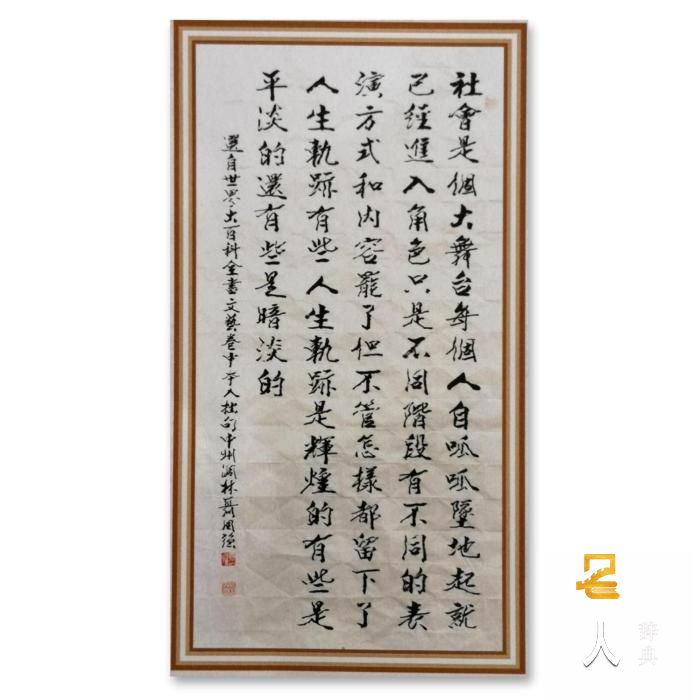 社會是個大舞台每個人自呱呱墜地起就
已經進入角色只是不同階段有不同的表
演方式和內容罷了但不管怎樣都留下了
人生軌跡有些人生軌跡是輝煌的有些是
平淡的還有些是暗淡的
選自世界大百科全書文藝卷中平人拙句中州澗林聶國強
名
人
辞典